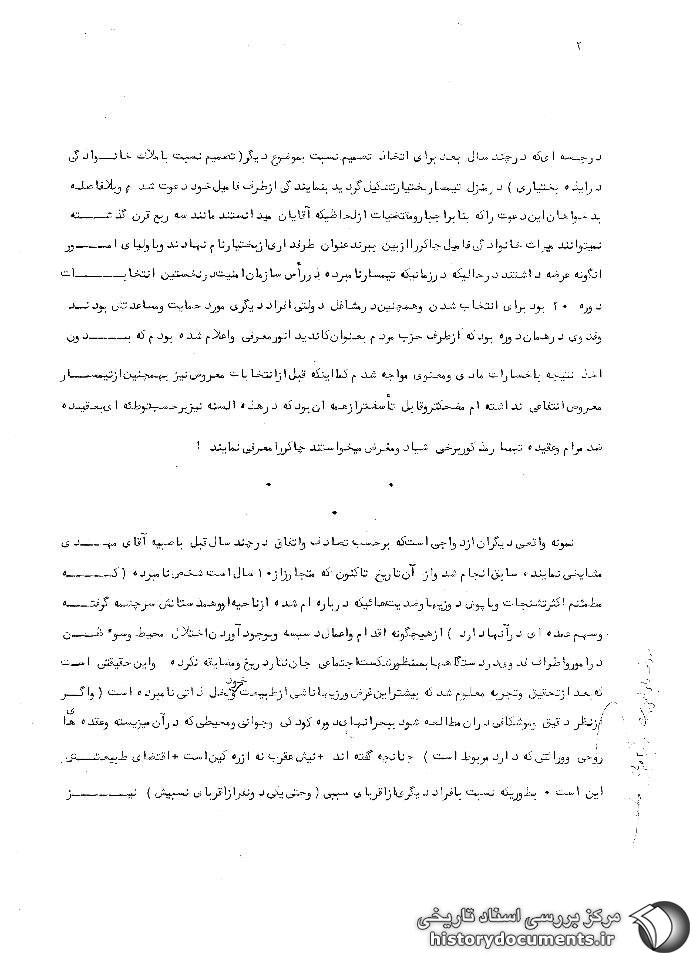 ۲
در جلسه ای که در چند سال بعد برای اتخاذ تصمیم نسبت بموضوع دیگر ( تصمیم نسبت باملاک خانوادگی
درایذه بختیاری ) در منزل تیمسار بختیار تشکیل گردید بنمایندگی از طرف فامیل خود دعوت شدم و بلافاصله
بدخواهان این دعوت را که بنا براجبار و مقتضیات از لحاظیکه آقایان میدانستند مانند سه ربع قرن گذشته
نمیتوانند میراث خانوادگی فامیل چاکر را از بین ببرند عنوان طرفداری از بختیار نام نهادند و با ولیای امور
اینگونه عرضه داشتند در حالیکه در زمانیکه تیمسار نامبرده در رأس سازمان امنیت در نخستین انتخابات
دوره ۲۰ بود برای انتخاب شدن و همچنین در مشاغل دولتی افراد دیگری مورد حمایت و مساعدتش بودند
وفدوی در همان دوره بود که از طرف حزب مردم بعنوان کاندید انور معرفی و اعلام شده بودم که بدون
اخذ نتیجه با خسارات مادی و معنوی مواجه شدم کما اینکه قبل از انتخابات معروض نیز بهمچنین از تیمسار
معروض انتفاعی نداشته ام مضحکتر و قابل تأسفتر از همه آن بود که در هذه السنه نیز برحسب توطئه ای بعقیده
ضد مرام و عقیده تیمسار مذکور برخی شیاد و مغرض میخواستند چاکر را معرفی نمایند !
* *
*
نمونه واقعی دیگر آن ازدواجی است که برحسب تصادف و اتفاق در چند سال قبل با صبیه آقای مهدی
مشایخی نماینده سابق انجام شد و از آن تاریخ تاکنون که متجاوز از ۱۰ سال است شخص نامبرده ( که
مطمئنم اکثر تشنجات و پاپوش دوزیها و ضدیتهائیکه درباره ام شده از ناحیه او و همدستانش سرچشمه گرفته
و سهم عمده ای در آنها دارد ) از هیچگونه اقدام و اعمال دسیسه و بوجود آوردن اختلال محیط و سوء ظن
در امور و اطراف فدوی در دستگاهها بمنظور شکست اجتماعی جان نثار دریغ و مضایقه نکرده و این حقیقتی است
که بعد از تحقیق و تجربه معلوم شد که بیشتر این غرض ورزیها ناشی از طبیعت خود خلل ذاتی نامبرده است ( و اگر
از نظر دقیق و موشکافی در آن مطالعه شود ببحرانهای دوره کودکی و جوانی و محیطی که در آن میزیسته و عقده های
روحی و وراثتی که دارد مربوط است ) چنانچه گفته اند + نیش عقرب نه از ره کین است + اقتضای طبیعتش
این است ۰ بطوریکه نسبت بافراد دیگری از اقربای سببی ( وحتی یکی دو نفر از اقربای نسبیش ) نیز
مرکز بررسی اسناد تاریخی
historydocuments.ir